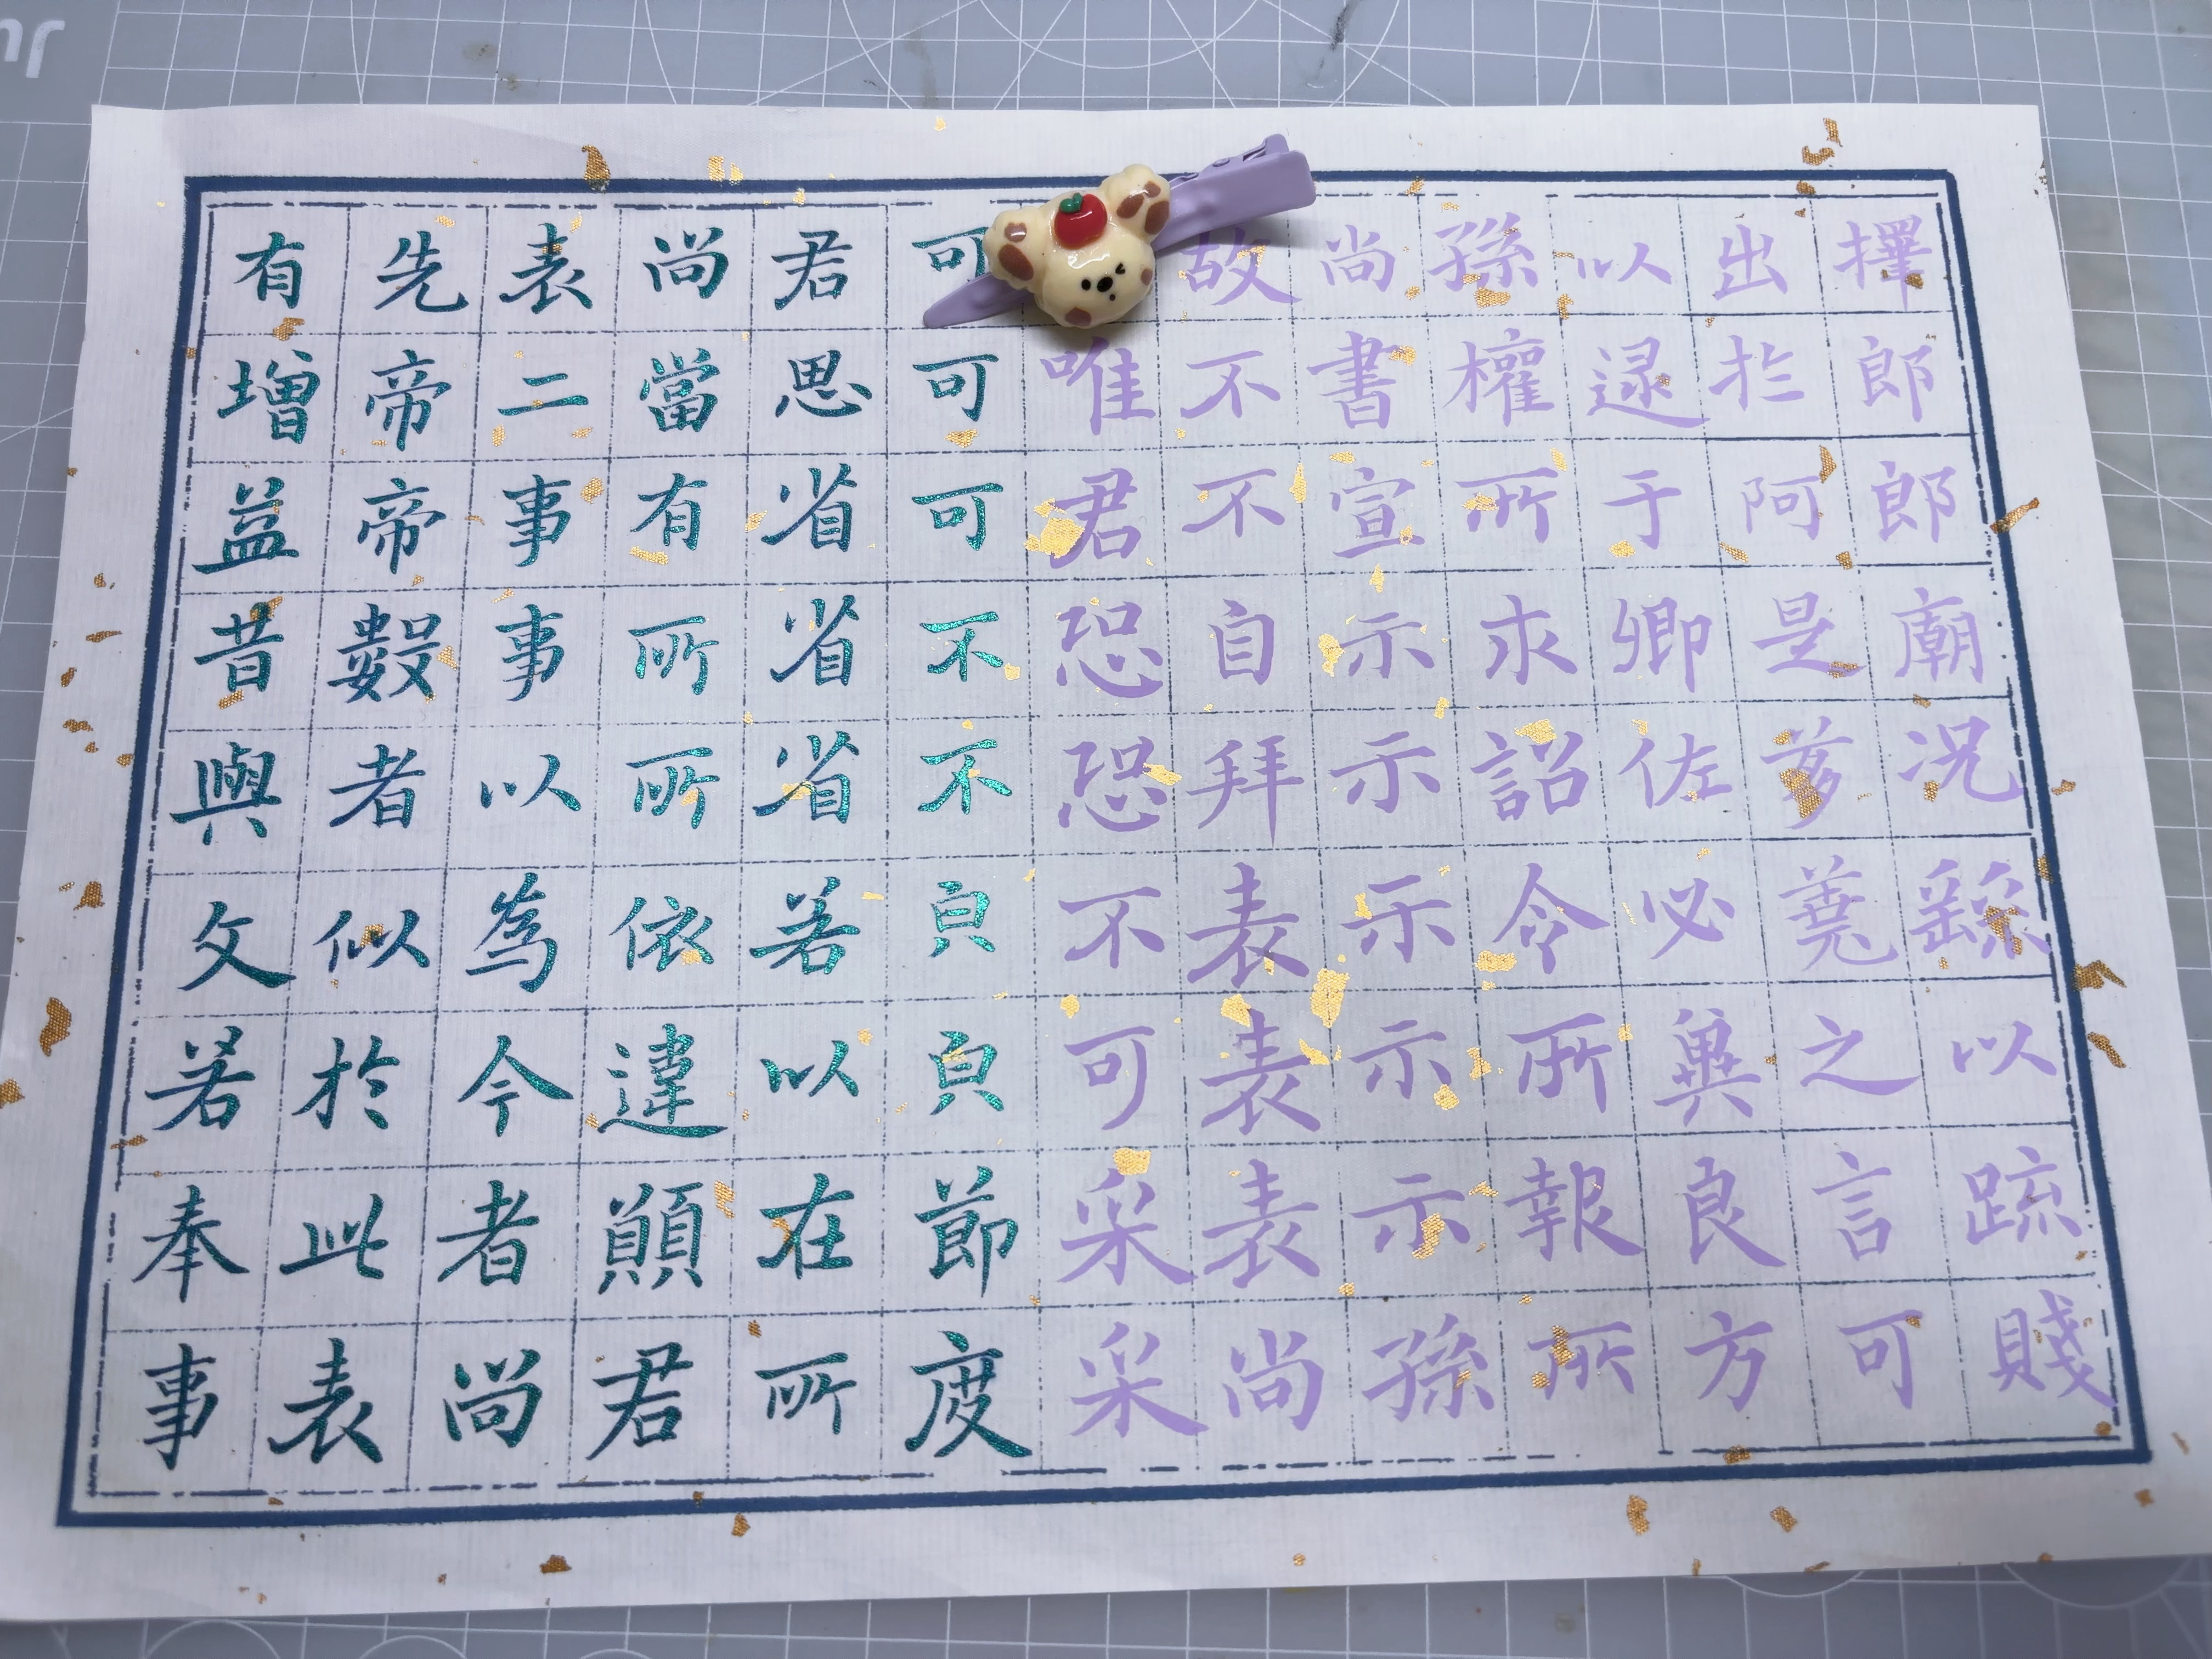 擇郎郎廟況繇以疏賤
出於阿是芻蕘之言可
以逮于卿佐必冀良方
孫權所求詔令所報所
尚書宣示示示示示孫
故不不自拜表表表尚
唯君恐恐不可采采
可可可不不負負節度
君思省省省若以在所
尚當有所所依違願君
表二事事以為今者尚
先帝帝數者似於此表
有增益昔與文若奉事